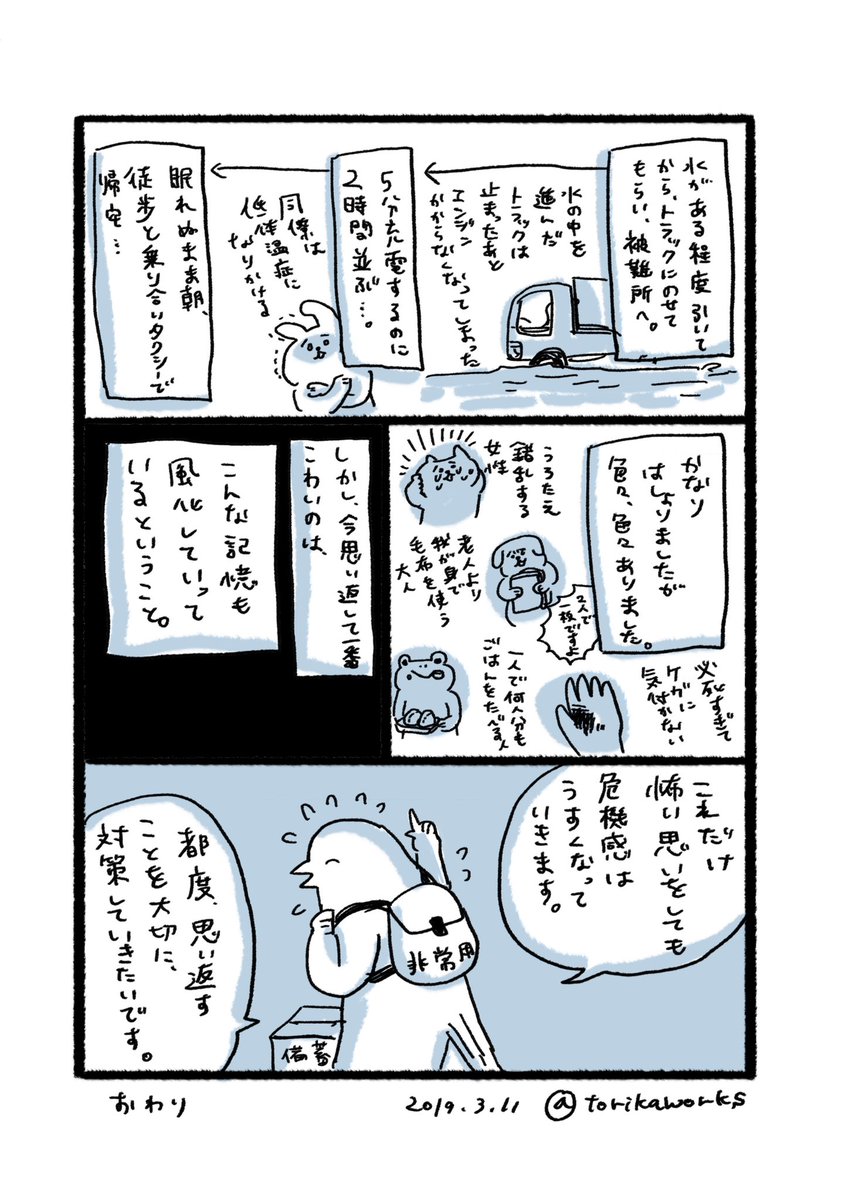 水がある程度引いて
から、トラックにのせて
もらい、被難所へ。
水の中を
進んだ
トラックは
止まったあと
エンジン
かからなくなってしまった
5分充電するのに
2時間並ぶ…。
同僚は
低体温症に
なりかける
眠れぬまま朝、
徒歩と乗り合いタクシーで
帰宅…
かなり
はしょりましたが
色々、色々ありました。
うろたえ
錯乱する
女性
老人より
我が身で
毛布を使う
大人
2人で
一枚ですよ
必死すぎて
ケガに
気付かない
一人で何人分も
ごはんをたべる人
しかし、今思い返して一番
こわいのは、
こんな記憶も
風化していって
いるということ。
これだけ
怖い思いをしても
危機感は
うすくなって
いきます。
都度、思い返す
ことを大切に、
対策していきたいです。
非常用
備蓄
おわり
2019.3.11 @torikaworks